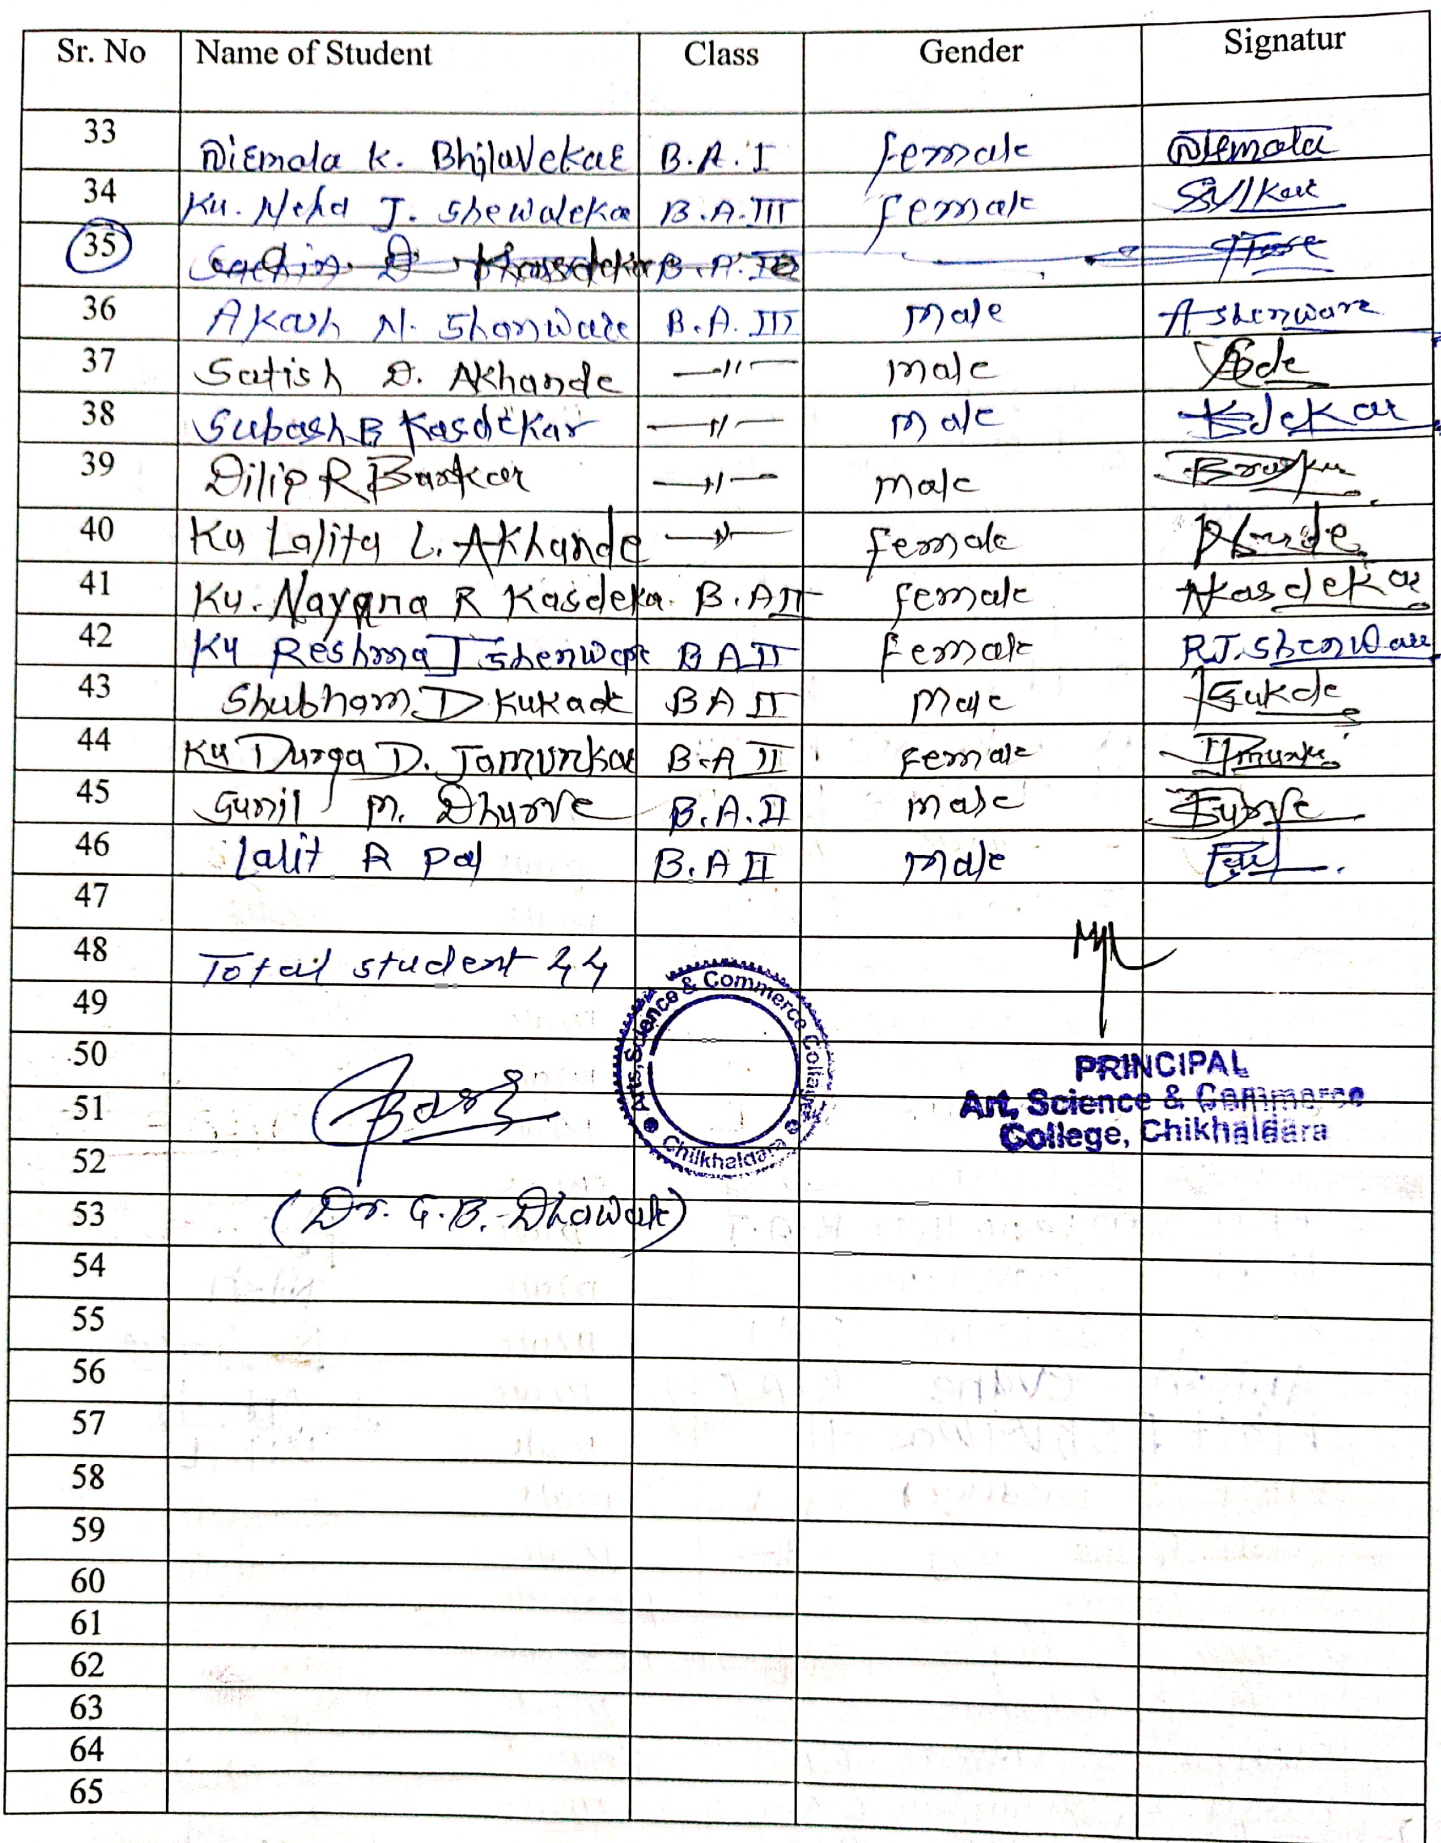 Sr. No Name of Student Class Gender Signatur
33 Nirmala K. Bhilavekar B.A. I female Nirmala
34 Ku. Neha J. Shewalekar B.A. III female
35 Sachin D Kasdekar B.A. III
36 Akash N. Shanware B.A. III male A shenware
37 Satish D. Akhande —〃— male
38 Subash B Kasdekar —〃— male Kdekar
39 Dilip R Barkar —〃— male
40 Ku Lalita L. Akhande —〃— female
41 Ku. Nayana R Kasdekar B.A II female Nkasdekar
42 Ku Reshma J shenware B A II Female R.J. Shenware
43 Shubham D Kukade B A II Male
44 Ku Durga D. Jamunkar B.A II Female
45 Sunil M. Dhurve B.A. II male
46 Lalit R Pal B.A II Male
47
48 Total student 44
49
50
51
52
53 (Dr. G.B. Dhawale)
Arts, Science & Commerce College
Chilkhaldara
PRINCIPAL
Art, Science & Commerce
College, Chikhaldara
54
55
56
57
58
59
60
61
62
63
64
65